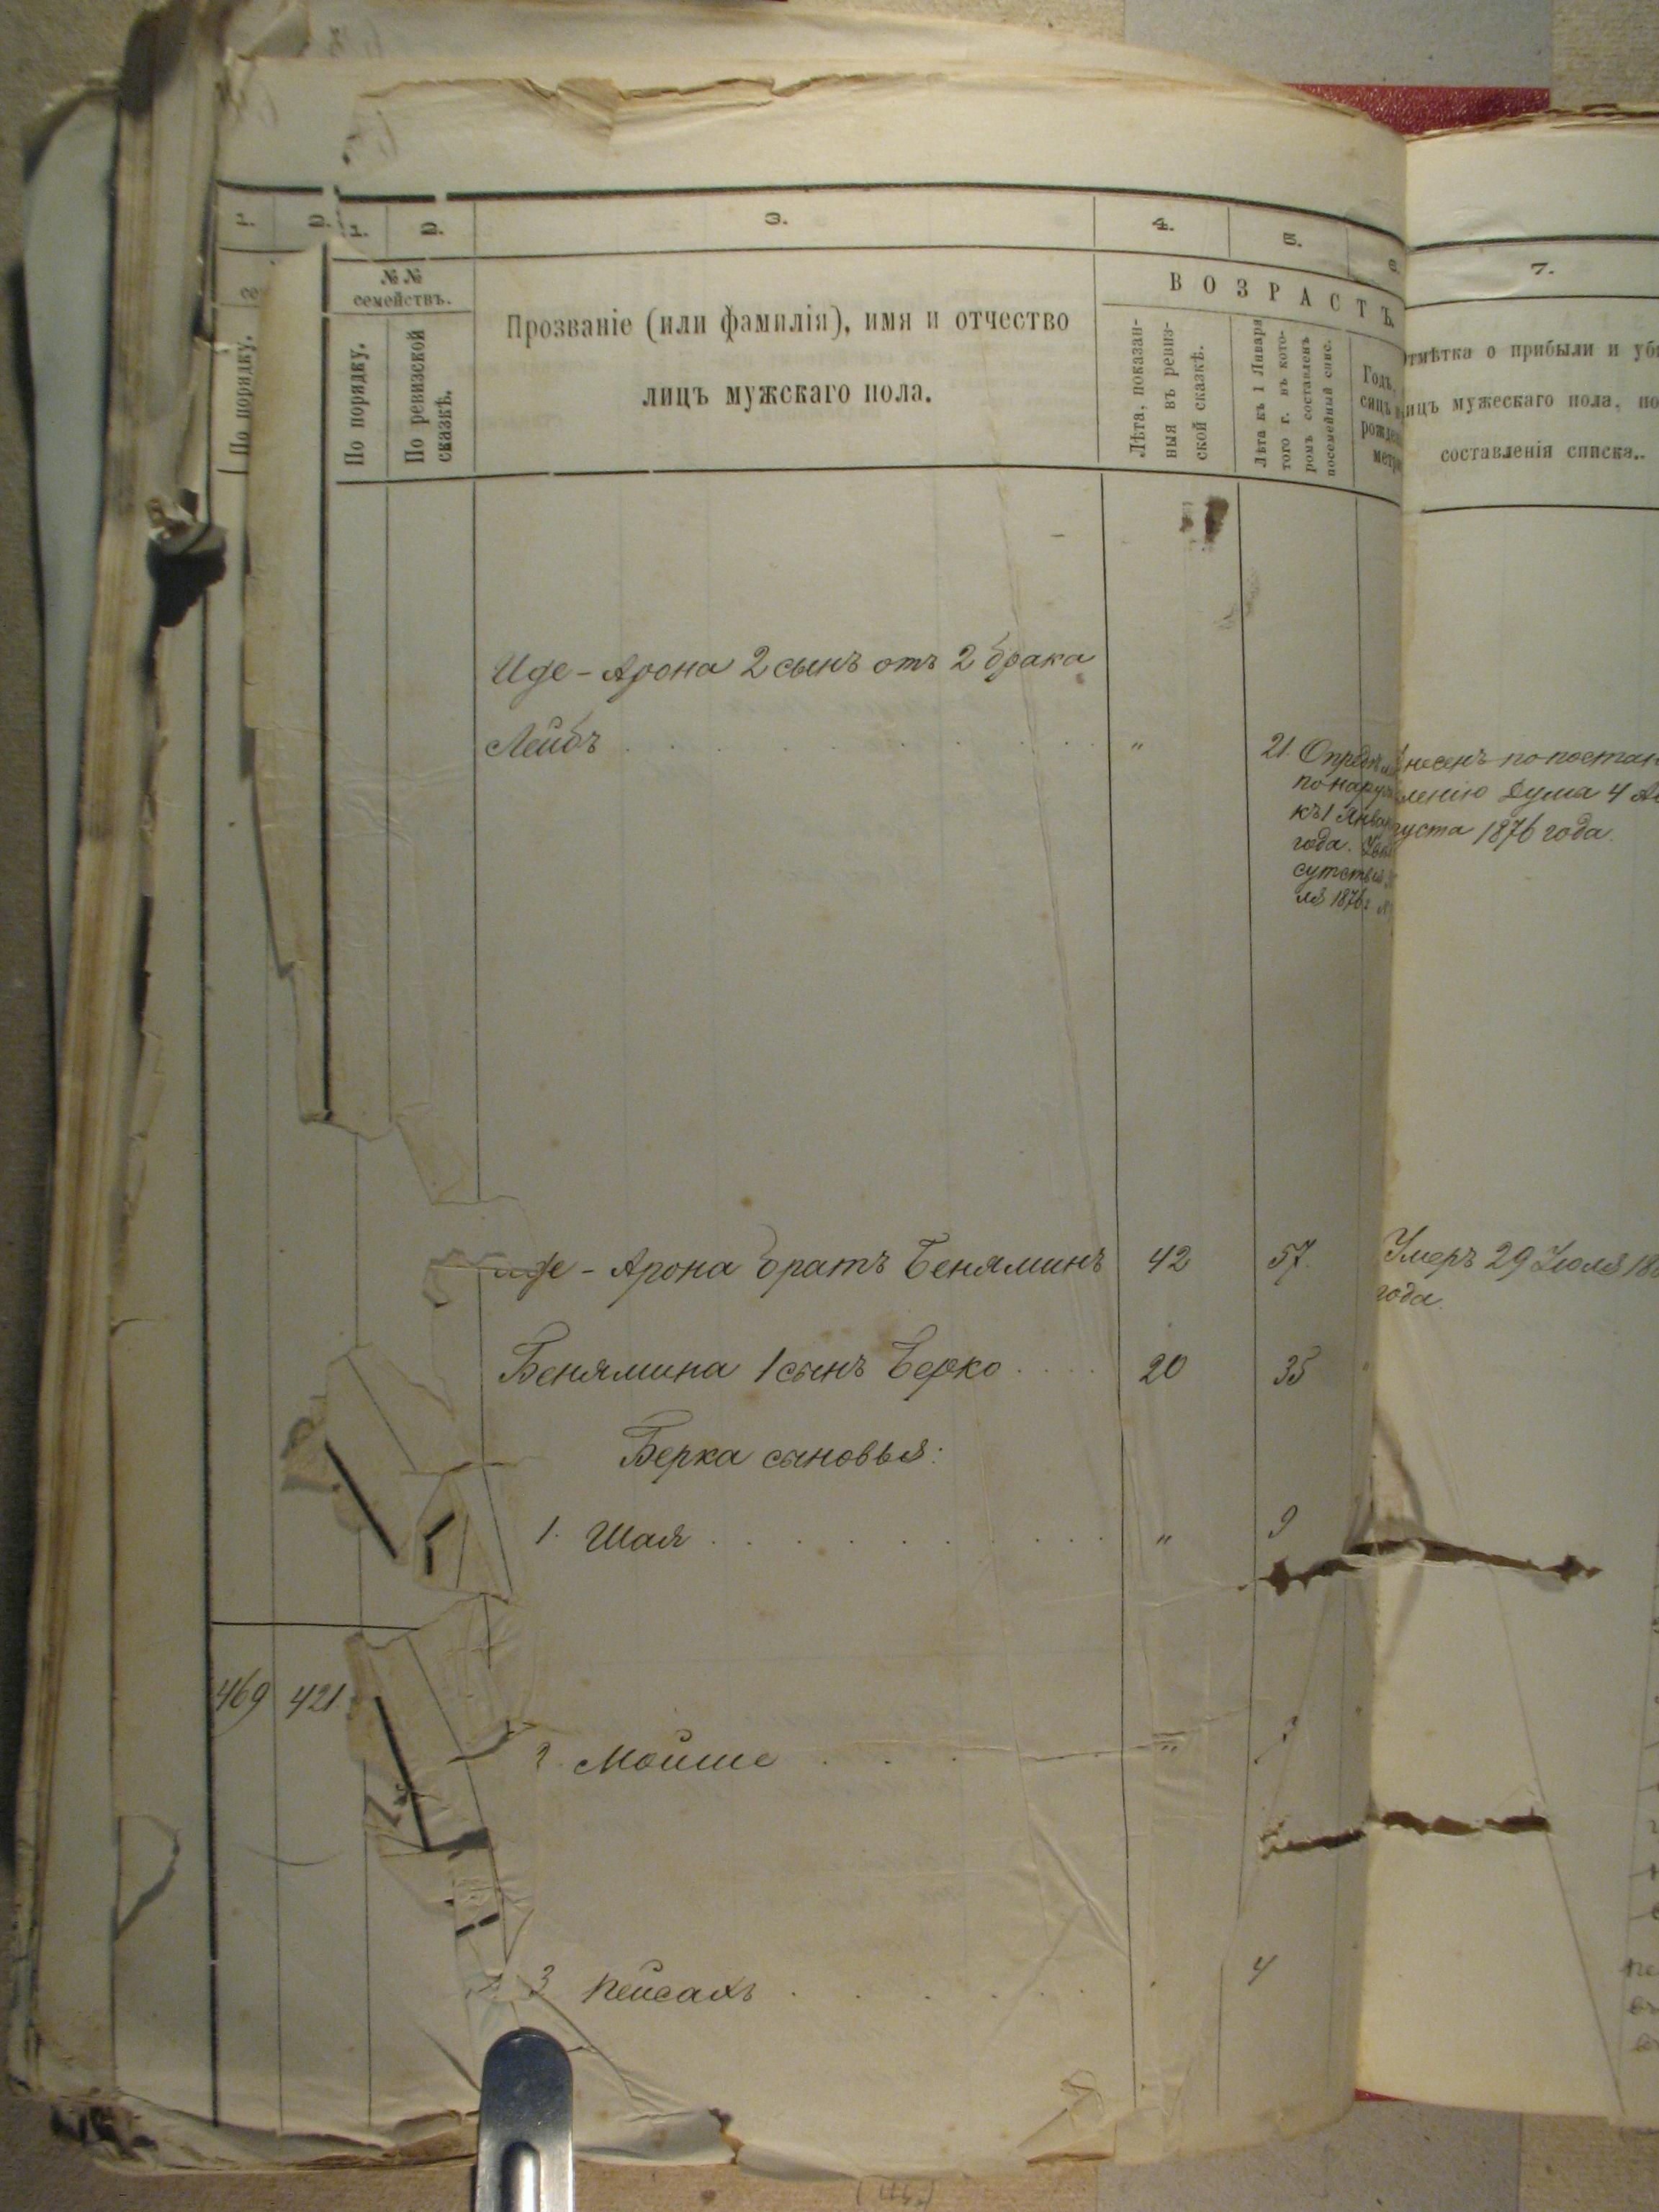 1. 2. 1. 2. 3. 4. 5. 6. 7.
№ №
семействъ.
По порядку.
По порядку.
По ревизской
сказкѣ.
Прозваніе (или фамилія), имя и отчество
лицъ мужскаго пола.
ВОЗРАСТЪ.
Лѣта, показан-
ныя въ ревиз-
ской сказкѣ.
Лѣта къ 1 Января
того г. въ кото-
ромъ составленъ
посемейный спис.
Годъ,
сяцъ
рожде
метр
тмѣтка о прибыли и уб
ицъ мужескаго пола, по
составленія списка..
Иде-Арона 2 сынъ отъ 2 брака
Лейбъ . . . . . . . . . . „ 21.
къ 1 Янва
года.
сутствія
ля 1876 г
несенъ по постан
ленію Дума 4 Ав
густа 1876 года.
де-Арона братъ Бенямин 42 57. Умеръ 29 Іюля 18
года.
Бенямина 1 сынъ Берко . . . . 20 35
Берка сыновья:
1. Шая . . . . . . . . . „ 9
469 421.
2. Мойше . . . „
3 Пейсахъ . . . . . . 4